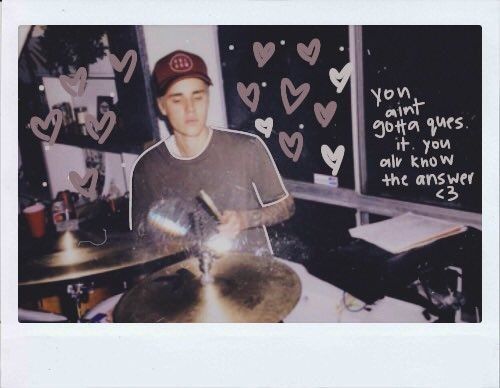 you
aint
gotta ques.
it. you
alr know
the answer
<3